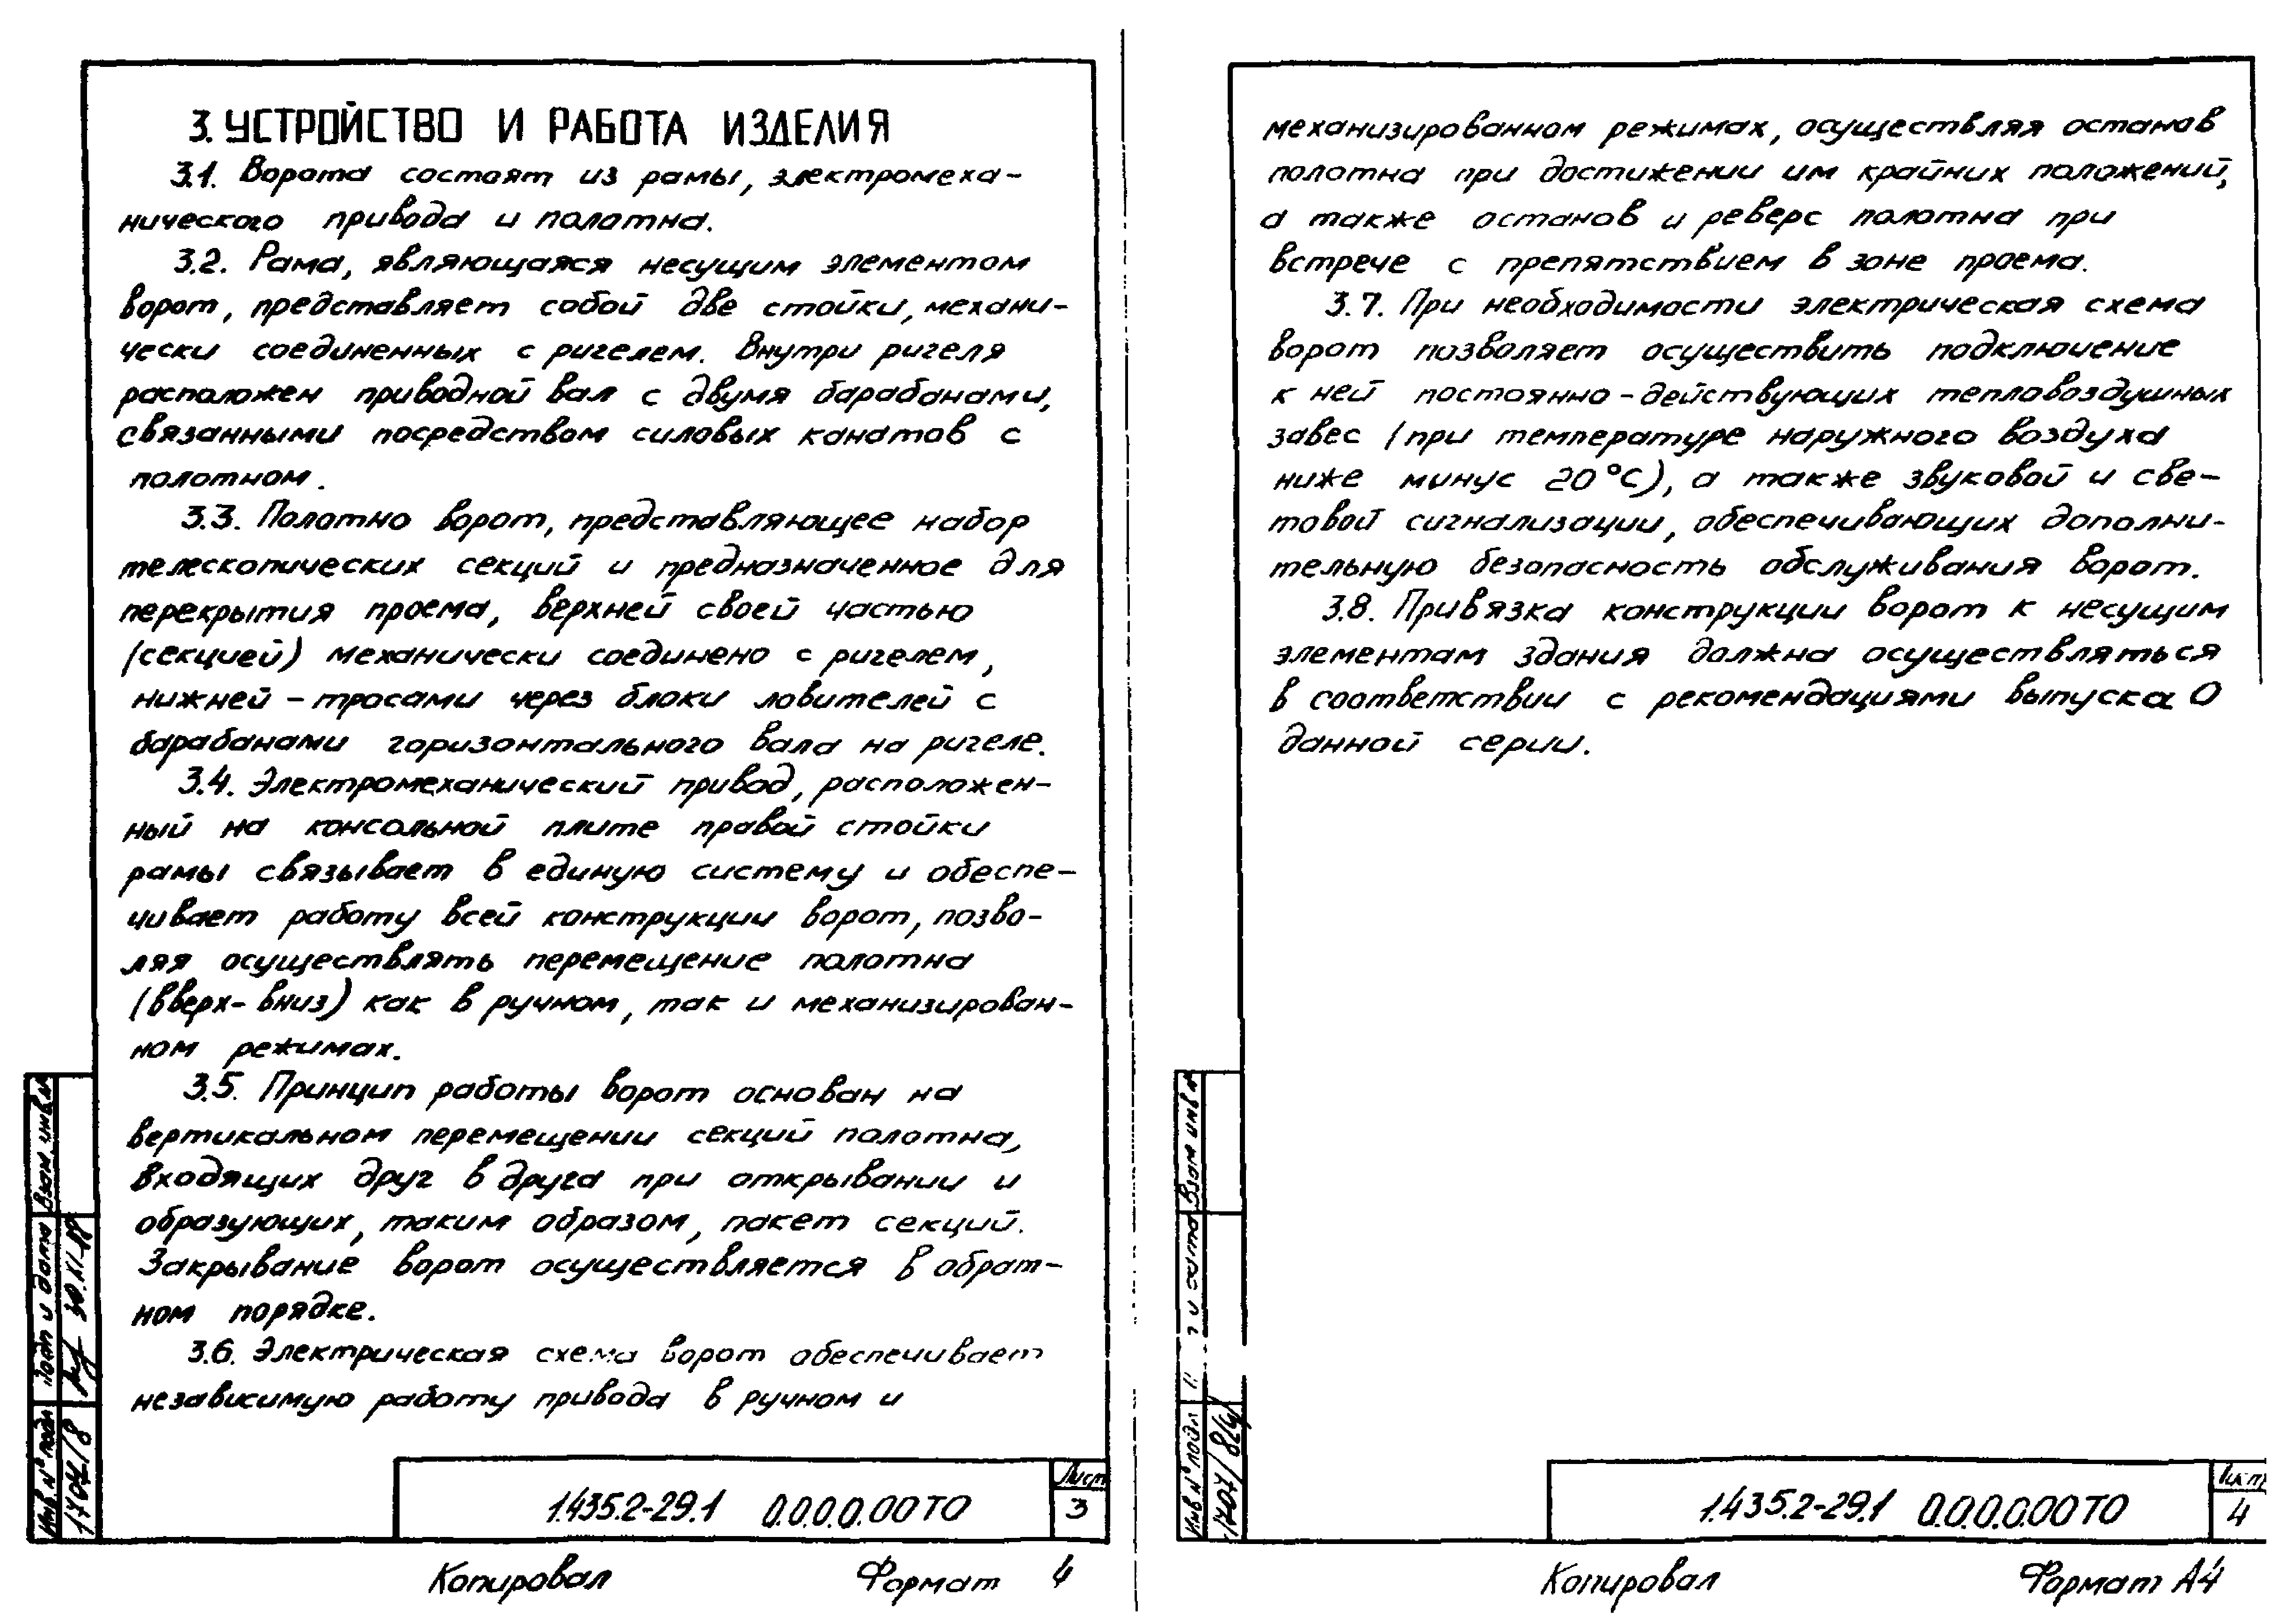 3. УСТРОЙСТВО И РАБОТА ИЗДЕЛИЯ
3.1. Ворота состоят из рамы, электромеха-
нического привода и полотна.
3.2. Рама, являющаяся несущим элементом
ворот, представляет собой две стойки, механи-
чески соединенных с ригелем. Внутри ригеля
расположен приводной вал с двумя барабанами,
связанными посредством силовых канатов с
полотном.
3.3. Полотно ворот, представляющее набор
телескопических секций и предназначенное для
перекрытия проема, верхней своей частью
(секцией) механически соединено с ригелем,
нижней - тросами через блоки ловителей с
барабанами горизонтального вала на ригеле.
3.4. Электромеханический привод, расположен-
ный на консольной плите правой стойки
рамы связывает в единую систему и обеспе-
чивает работу всей конструкции ворот, позво-
ляя осуществлять перемещение полотна
(вверх-вниз) как в ручном, так и механизирован-
ном режимах.
3.5. Принцип работы ворот основан на
вертикальном перемещении секций полотна,
входящих друг в друга при открывании и
образующих, таким образом, пакет секций.
Закрывание ворот осуществляется в обрат-
ном порядке.
3.6. Электрическая схема ворот обеспечивает
независимую работу привода в ручном и
Взам. инв. №
Подп и дата
Инв. № подл
1.435.2-29.1 0.0.0.0.00 ТО
Лист
3
Копировал Формат 4
механизированном режимах, осуществляя останов
полотна при достижении им крайних положений,
а также останов и реверс полотна при
встрече с препятствием в зоне проема.
3.7. При необходимости электрическая схема
ворот позволяет осуществить подключение
к ней постоянно-действующих тепловоздушных
завес (при температуре наружного воздуха
ниже минус 20°С), а также звуковой и све-
товой сигнализации, обеспечивающих дополни-
тельную безопасность обслуживания ворот.
3.8. Привязка конструкции ворот к несущим
элементам здания должна осуществляться
в соответствии с рекомендациями выпуска 0
данной серии.
Взам инв №
Инв № подл
1.435.2-29.1 0.0.0.0.00 ТО
Лист
4
Копировал Формат А4